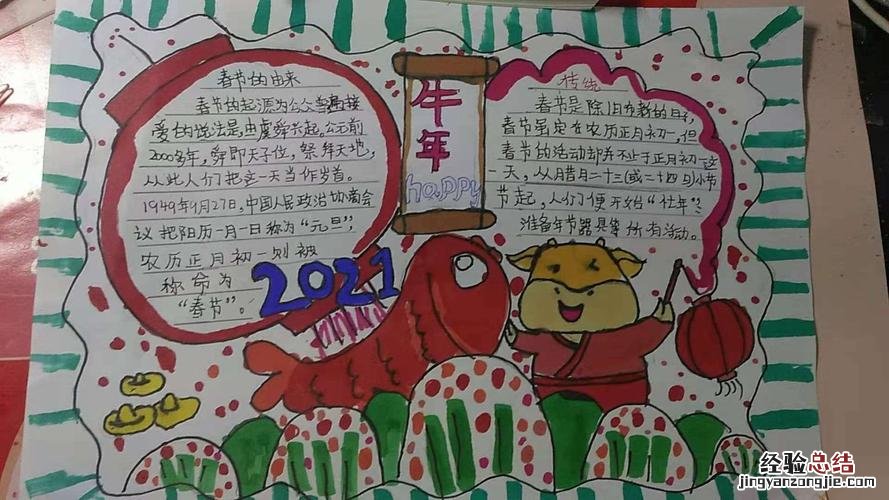 春节的由来
春节的起源为公众普遍接
受的说法是由虞舜兴起,公元前
2000多年,舜即天子位,祭拜天地,
从此人们把这一天当作岁首。
1949年9月27日,中国人民政治协商会
议把阳历一月一日称为“元旦”,
农历正月初一则被
称命为
“春节”。
2021
牛年
happy
传统
春节是除旧布新的日子,
春节虽定在农历正月初一,但
春节的活动却并不止于正月初一这
一天,从腊月二十三(或二十四日)小节
节起,人们便开始“忙年”:
准备年节器具等所有活动。
经验总结
jingyanzongjie.com